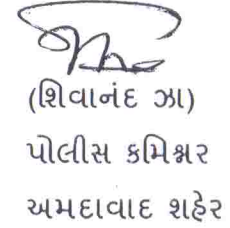 (શિવાનંદ ઝા)
પોલીસ કમિશ્નર
અમદાવાદ શહેર